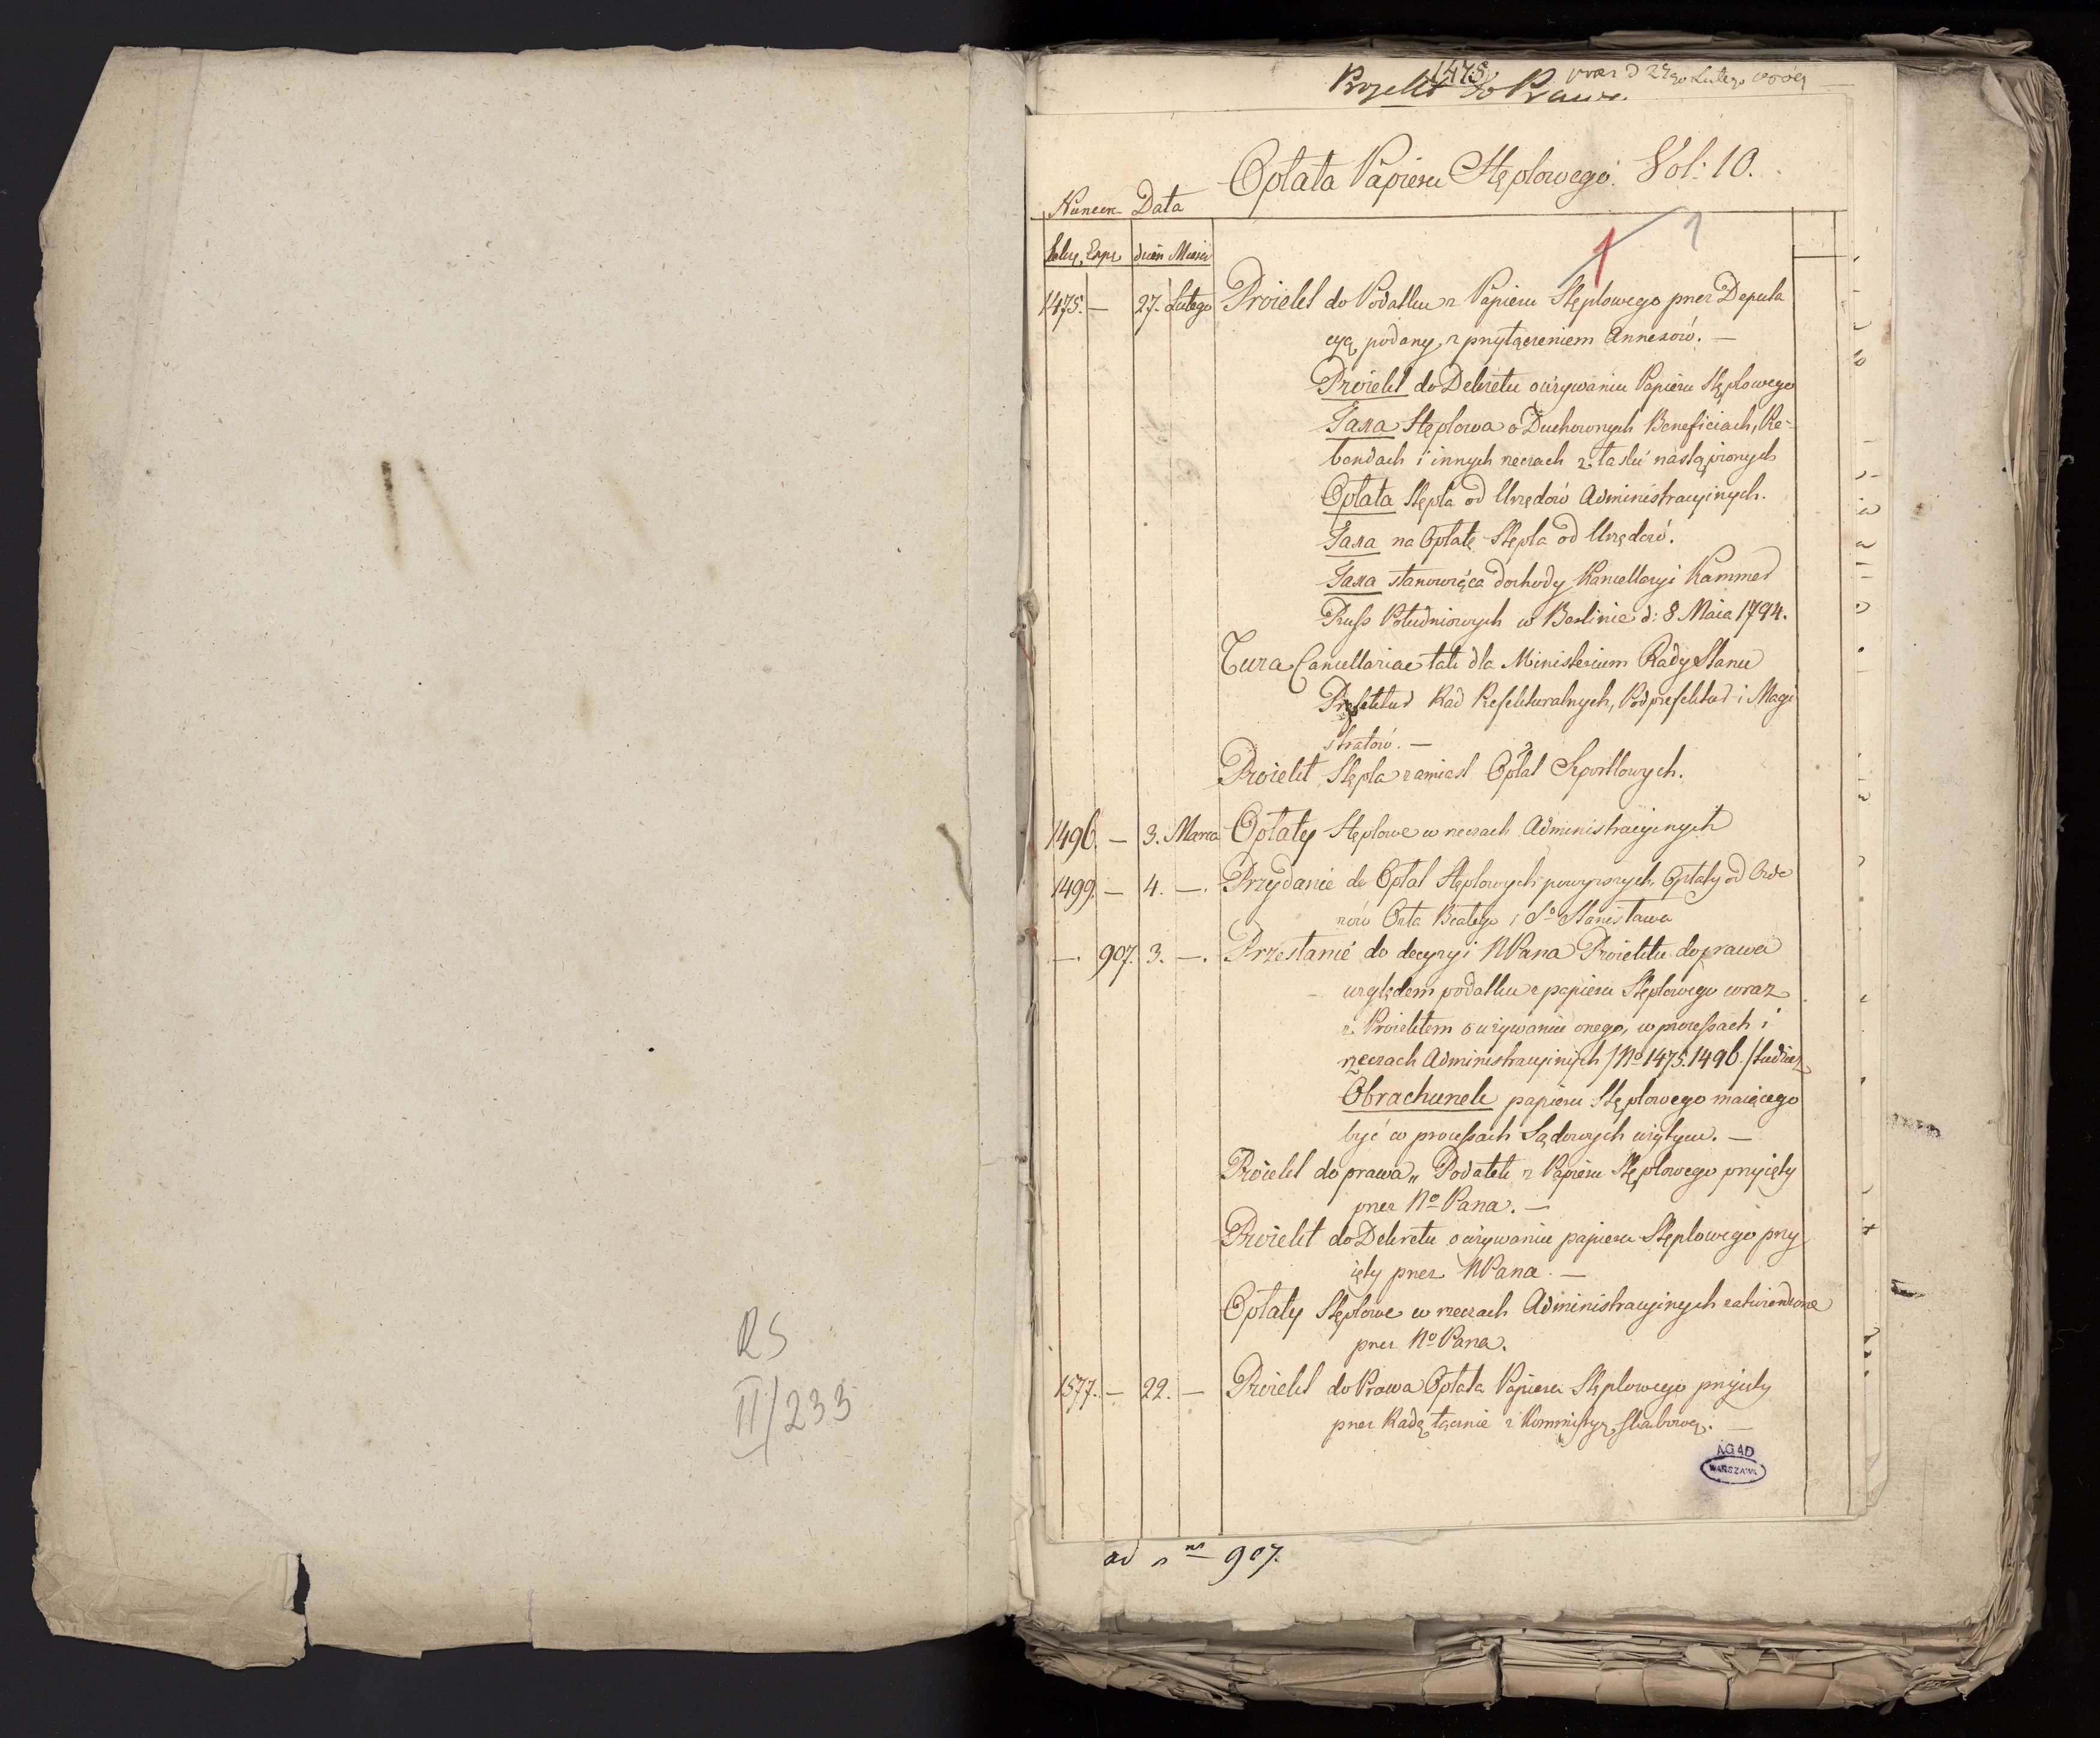 1475
Projekt do Prawa
Opłata Papieru Stęplowego. Vol: 10.
Numer Data
Expe dnia Miesia
1
1
1475. — 27. Lutego Proiekt do Podatku z Papieru Stęplowego przez Deputa
cyą podany, z przyłączeniem Annexów. —
Proiekt do Dekretu o używaniu Papieru Stęplowego
Taxa Stęplowa o Duchownych Beneficiach, Re-
i innych rzeczach z łaski nastąpionych
Opłata Stępla od Urzędów Administracyinych.
Taxa na Opłatę Stępla od Urzędów.
Taxa stanowiąca dochody Kancellaryi Kammer
Pruss Południowych w Berlinie d: 8 Maia 1794.
Jura Cancellariae tak dla Ministerium Rady Stanu
Prefektur Rad Prefekturalnych, Podprefektur i Magi
stratów. —
Proiekt Stępla zamiast Opłat Sportlowych.
1496. — 3. Marca Opłaty Stęplowe w rzeczach Administracyinych
1499. — 4. —. Przydanie do Opłat Stęplowych powyższych, Opłaty od Orde
rów Orła Białego i So Stanisława
—. 907. 3. —. Przesłanie do decyzyi NPana Proiektu do prawa
względem podatku z papieru Stęplowego wraz
z Proiektem o używaniu onego, w processach i
rzeczach Administracyinych /No 1475. 1496./ tudzież
Obrachunek papieru Stęplowego maiącego
być w processach Sądowych użytym. —
Proiekt do prawa „ Podatek z Papieru Stęplowego przyięty
przez No Pana. —
Proiekt do Dekretu o używaniu papieru Stęplowego przy
ięty przez NPana. —
Opłaty Stęplowe w rzeczach Administracyinych zatwierdzone
przez No Pana.
1577. — 22. — Proiekt do Prawa Opłata Papieru Stęplowego przyięty
przez Radę łącznie z Kommissyą Skarbową. —
AGAD
WARSZAWA
ad 907.
RS
II/233